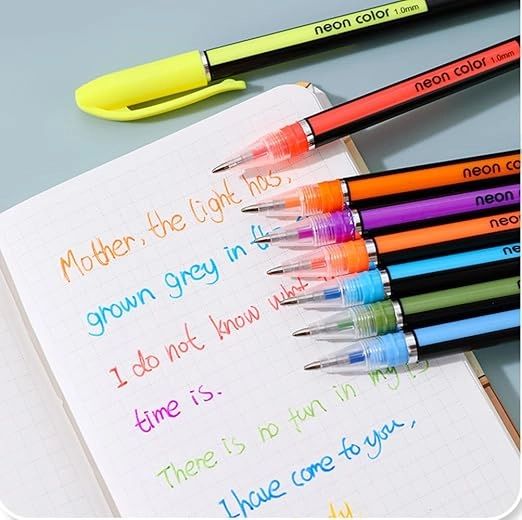 neon color 1.0mm
neon color 1.0mm
neon color
neon
neon
Mother, the light has,
grown grey in the
I do not know what
time is.
There is no fun in my
I have come to you,